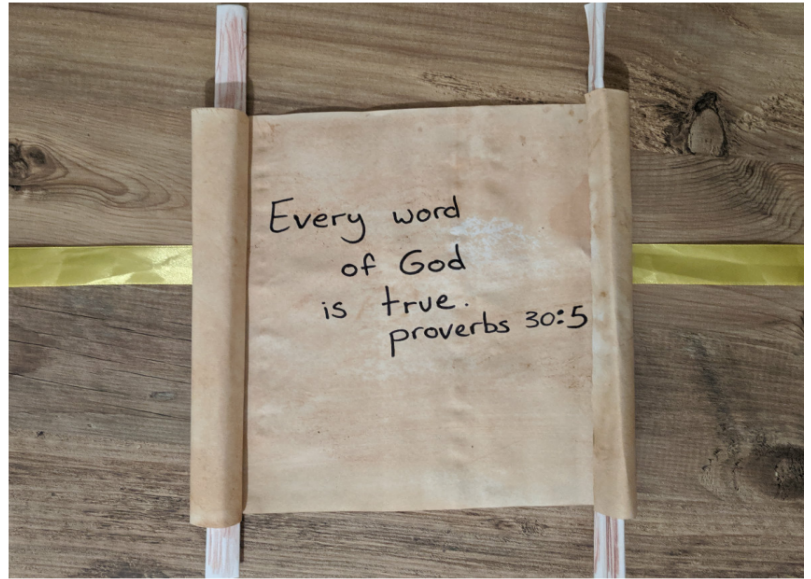 Every word
of God
is true.
proverbs 30:5